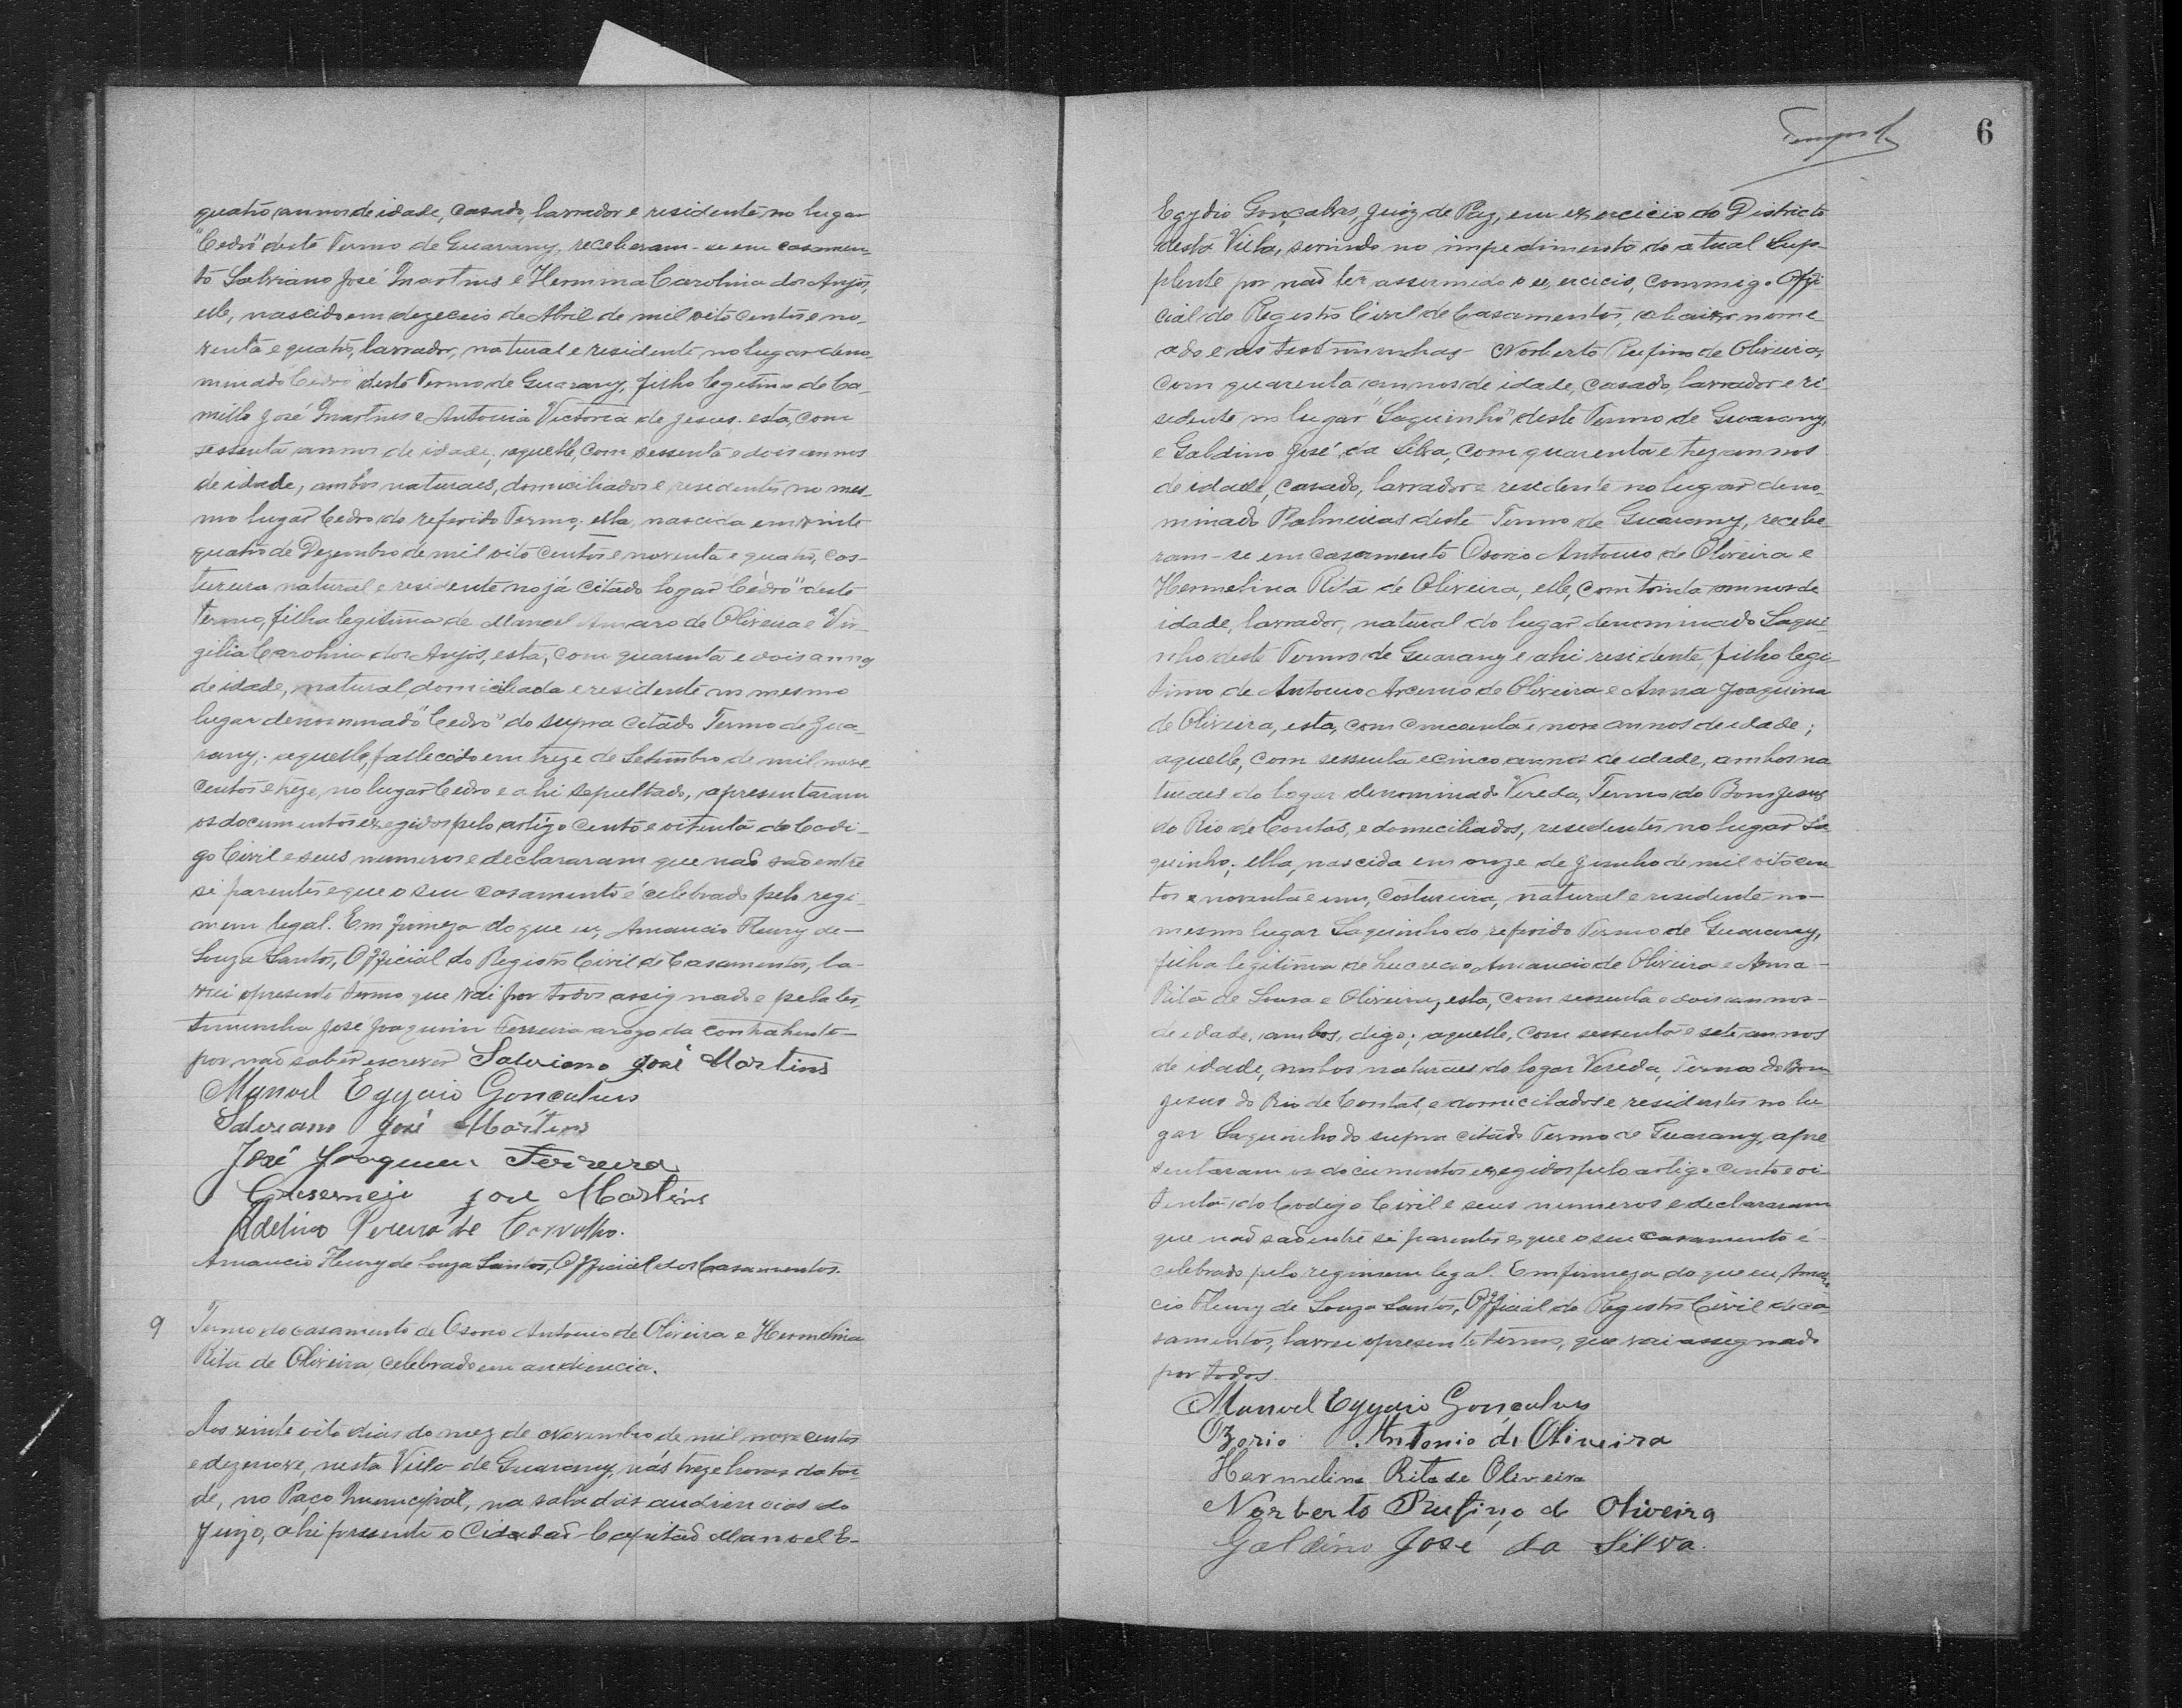 quatro annos de idade, casado, lavrador e residente no lugar
"Cedro" deste Termo de Guarany, receberam-se em casamen-
to Salviano José Martins e Hermina Carolina dos Anjos,
elle, nascido em dezeceis de Abril de mil oito centos e no-
venta e quatro, lavrador, natural e residente no lugar deno-
minado "Cedro" deste Termo de Guarany, filho legitimo de Ca-
millo José Martins e Antonia Victoria de Jesus, esta, com
sessenta annos de idade; aquelle, com sessenta e dois annos
de idade, ambos naturaes, domiciliados e residentes no mes-
mo lugar Cedro do referido Termo; ella, nascida em vinte
quatro de Dezembro de mil oito centos e noventa e quatro, cos-
tureira natural e residente no já citado logar "Cedro" deste
Termo, filha legitima de Manoel Amaro de Oliveira e Vir-
gilia Carolina dos Anjos, esta, com quarenta e dois annos
de idade, natural, domiciliada e residente no mesmo
lugar denominado "Cedro" do supra citado Termo de Gua-
rany; aquelle, fallecido em treze de Setembro de mil nove-
centos e treze, no lugar Cedro e ahi sepultado, apresentaram
os documentos exegidos pelo artigo cento e oitenta do Codi-
go Civil e seus numeros e declararam que não são entre
si parentes e que o seu casamento é celebrado pelo regi-
mem legal. Em firmeza do que eu, Amancio Fleury de
Souza Santos, Official do Registro Civil de Casamentos, la-
vrei o presente termo que vai por todos assignado e pela tes-
timunha José Joaquim Ferreira a rogo da contrahente
por não saber escrever Salviano José Martins
Manoel Egydio Goncalves
Salviano José Martins
José Joaquim Ferreira
José Martins
Adelino Pereira de Carvalho.
Amancio Fleury de Souza Santos, Official dos Casamentos.
9 Termo do casamento de Osorio Antonio de Oliveira e Hermelina
Rita de Oliveira, celebrado em audiencia.
Aos vinte oito dias do mez de Novembro de mil nove centos
e dezenove, nesta Villa de Guarany, ás treze horas da tar
de, no Paço Municipal, na sala das audiencias do
Juizo, ahi presente o Cidadão Capitão Manoel E-
6
Egydio Gonçalves, Juiz de Paz, em exercicio do Districto
desta Villa, servindo no impedimento do atual Sup-
plente por não ter assumido o exercicio, commigo Offi-
cial do Registro Civil de Casamentos, abaixo nome
ado e as testimunhas Norberto Rufino de Oliveira,
com quarenta annos de idade, casado, lavrador e re
sidente no lugar "Laquinho" deste Termo de Guarany,
e Galdino José da Silva, com quarenta e trez annos
de idade, casado, lavrador e residente no lugar deno-
minado Palmeiras deste Termo de Guarany, recebe-
ram-se em casamento Osorio Antonio de Oliveira e
Hermelina Rita de Oliveira, elle, com trinta annos de
idade, lavrador, natural do lugar denominado Laqui-
nho deste Termo de Guarany e ahi residente, filho legi-
timo de Antonio Arcenio de Oliveira e Anna Joaquina
de Oliveira, esta, com cincoenta e nove annos de idade;
aquelle, com sessenta e cinco annos de idade, ambos na
turaes do logar denominado Vereda, Termo do Bom Jesus
do Rio de Contas, e domiciliados, residentes no lugar La
quinho; ella, nascida em onze de Junho de mil oito cen
tos e noventa e um, costureira, natural e residente no
mesmo lugar Laquinho do referido Termo de Guarany,
filha legitima de Lucrecio Amancio de Oliveira e Anna
Rita de Sousa e Oliveira, esta, com sessenta e dois annos
de idade, ambos, digo; aquelle, com sessenta e sete annos
de idade, ambos naturaes do logar Vereda, Termo do Bom
Jesus do Rio de Contas, e domiciliados e residentes no lu
gar Laquinho do supra citado Termo de Guarany, apre
sentaram os documentos exegidos pelo artigo cento e oi-
tenta do Codigo Civil e seus numeros e declararam
que não são entre si parentes e que o seu casamento é
celebrado pelo regimem legal. Em firmeza do que eu, Aman
cio Fleury de Souza Santos, Official do Registro Civil de ca-
samentos, lavrei o presente termo, que vai assegnado
por todos.
Manoel Egydio Goncalves
Ozorio Antonio de Oliveira
Hermelina Rita de Oliveira
Norberto Rufino de Oliveira
Galdino José da Silva.